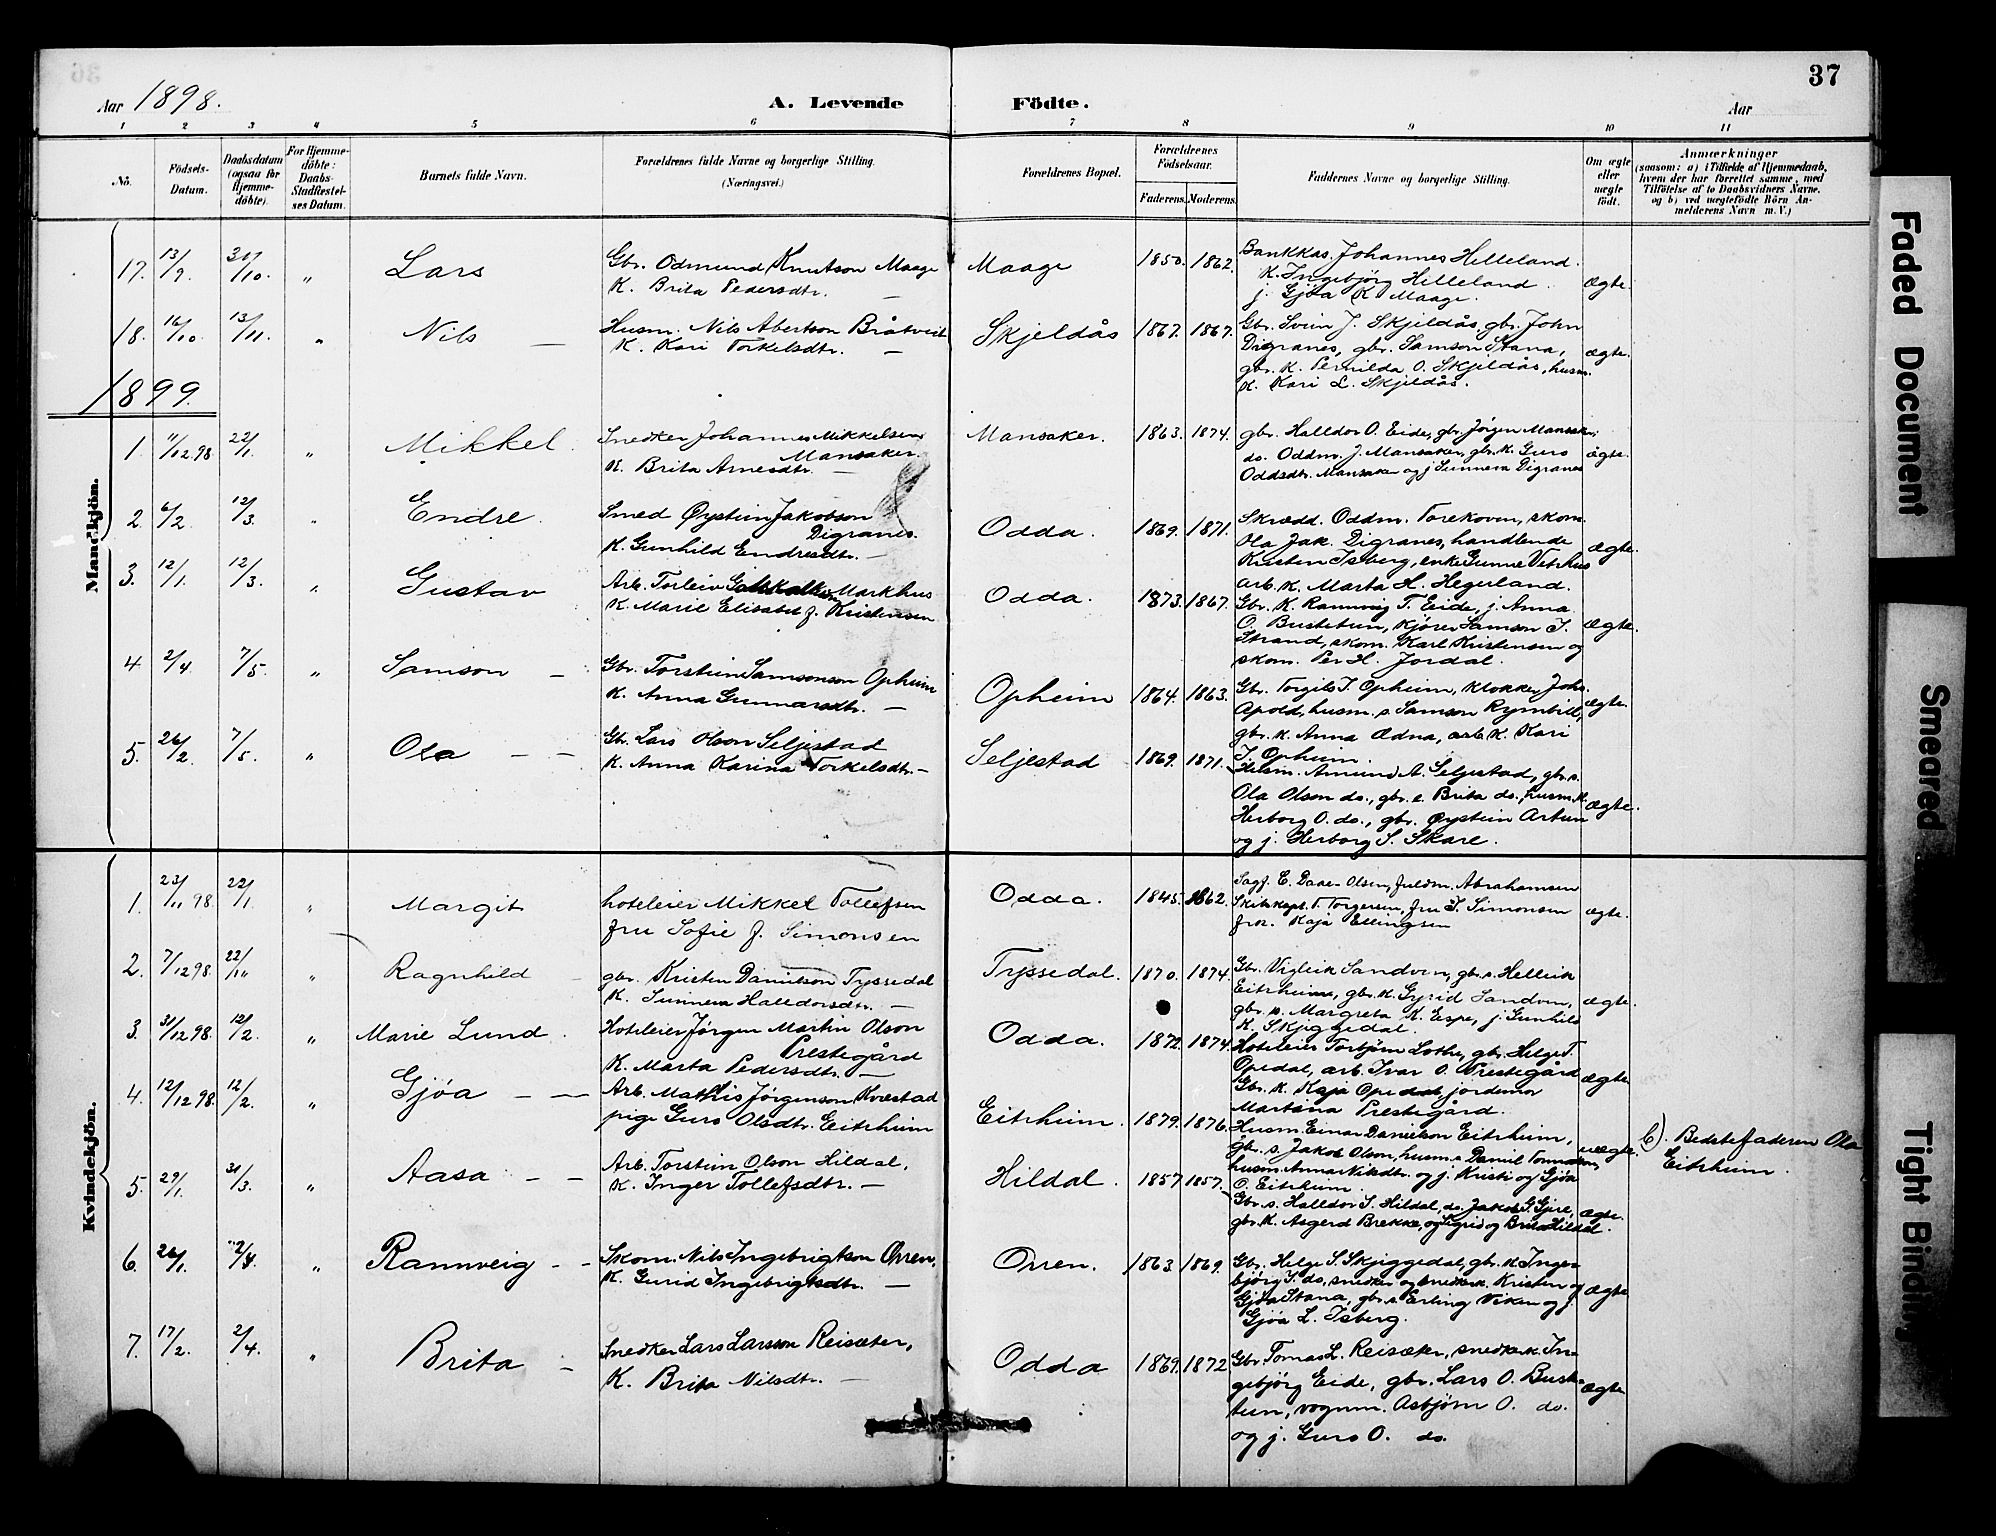 37
Aar 1898.
A. Levende Födte.
Aar
1 2 3 4 5 6 7 8 9 10 11
No.
Födsels-Datum.
Daabsdatum (ogsaa for Hjemme-döbte).
For Hjemme-döbte: Daabs-Stadfæstel-ses Datum.
Barnets fulde Navn.
Forældrenes fulde Navne og borgerlige Stilling. (Næringsvei.)
Forældrenes Bopæl.
Forældrenes Födselsaar.
Faderens. Moderens.
Faddernes Navne og borgerlige Stilling.
Om ægte eller uægte födt.
Anmærkninger
(saasom: a) i Tilfælde af Hjemmedaab,
hvem der har forrettet samme, med
Tilföielse af to Daabsvidners Navne.
og b) ved uægtefödte Börn An-
melderens Navn m. V.)
Mandkjön.
17. 13/9. 30/10. " Lars
Gbr. Odmund Knutson Maage
K. Brita Pedersdtr. —
Maage 1850. 1862.
Bankkas. Johannes Helleland.
K. Ingebjörg Hilleland.
j. Gjöa K. Maage.
ægte.
18. 16/10 13/11. " Nils —
Husm. Nils Abertson Bråtveit
K. Kari Torkelsdtr. —
Skjeldås 1867. 1867.
Gbr. Svein J. Skjeldås, gbr. John
Digranes, gbr. Samson Stana,
gbr. K. Pernilda O. Skjeldås, husm.
K. Kari L. Skjeldås.
ægte.
1899.
1. 11/12 98 22/1. " Mikkel.
Snedker Johannes Mikkelsen
Mansaker.
K. Brita Arnesdtr. —
Mansaker. 1863. 1874.
gbr. Halldor O. Eide, gbr. Jörgen Mansaker,
do. Oddm. J. Mansaker, gbr. K. Guro
Oddsdtr. Mansaker og j. Sunneva Digranes
ægte.
2. 6/2 12/3. " Endre.
Smed Øystein Jakobson
Digranes.
K. Gunhild Endresdtr. —
Odda. 1869. 1871.
Skrædd. Oddm. Torekoven, skom.
Ola Jak. Digranes, handlende
Kristen Isberg, enke Gunne Vetrhus
arb. K. Marta H. Hegerland.
ægte.
3. 12/1. 12/3. " Gustav
Arb. Torleiv Markhus
K. Marie Elisabet f. Kristensen
Odda. 1873. 1867.
Gbr. K. Rannveig T. Eide, j. Anna
O. Bustetun, Kjörer Samson I.
Strand, skom. Karl Kristensen og
skom. Per H. Jordal.
ægte.
4 2/4. 7/5. " Samson —
Gbr. Torstein Samsonson Opheim
K. Anna Gunnarsdtr. —
Opheim 1864. 1863.
Gbr. Torgils T. Opheim, Klokker Johs.
Apold, husm. s. Samson Rymbill,
gbr. K. Anna Ædna, arb. K. Kari
I. Opheim.
ægte.
5. 26/2 7/5. " Ola — —
Gbr. Lars Olson Seljestad
K. Anna Karina Torkelsdtr. —
Seljestad 1869. 1871.
Husm. Amund A. Seljestad, gbr. s.
Ola Olson do., gbr. e. Brita do., husm. K.
Herborg O. do., gbr. Øystein Artun
og j. Herborg S. Skare.
ægte.
Kvindekjön.
1. 23/11 98 22/1. " Margit
hoteleier Mikkel Tollefsen
fru Sofie f. Simonsen
Odda. 1845. 1862.
Sagf. E. Daae-Olsen, fuldm. Abrahamsen
Skibskapt. T. Torgersen, fru I. Simonsen
frk. Kaja Ellingsen
ægte.
2. 7/12 98 22/1 " Ragnhild —
gbr. Kristen Danielson Tyssedal
K. Sunneva Halldorsdtr. —
Tyssedal. 1870. 1874.
Gbr. Vigleik Sandven, gbr. s. Helleik
Eitrheim, gbr. K. Gyrid Sandven,
gbr. s. Margreta K. Espe, j. Gunhild
K. Skjeggedal.
ægte.
3. 31/12 98. 12/2. " Marie Lund.
Hoteleier Jörgen Martin Olson
Prestegård
K. Marta Pedersdtr. —
Odda. 1872. 1874.
Hoteleier Torbjörn Lothe, gbr. Helge T.
Opedal, arb. Ivar O. Prestegård
Gbr. K. Kaja Opedal, jordemor
Martina Prestegård.
ægte.
4. 12/12 98. 12/2. " Gjöa — —
Arb. Mathis Jörgenson Kvestad
pige Guro Olsdtr. Eitrheim
Eitrheim. 1879. 1876.
Husm. Einar Danielson Eitrheim,
gbr. s. Jakob Olson, husm. s. Daniel
husm. Anna Nilsdtr. og j. Kristi og Gjöa
O. Eitrheim.
uægte.
b). Bedstefaderen Ola
Eitrheim.
5. 29/1. 31/3. " Aasa — —
Arb. Torstein Olson Hildal.
K. Inger Tollefsdtr. —
Hildal. 1857 1857.
Gbr. s. Halldor S. Hildal, do. Jakob G. Gjere,
gbr. K. Asgerd Brekke, og Sigrid og Brita Hildal.
ægte.
6. 26/1. 2/4. " Rannveig — —
Skom. Nils Ingebrigtson Orren.
K. Gurid Ingebrigtsdtr. —
Orren. 1863. 1869.
Gbr. Helge S. Skjeggedal, gbr. K. Inge-
björg S. do, snedker og snedker K. Kristen og
Gjöa Stana, gbr. s. Erling Viken og j.
Gjöa L. Isberg.
ægte
7. 17/2. 2/4. " Brita —
Snedker Lars Larsson Reisæter,
K. Brita Nilsdtr. —
Odda 1869. 1872
Gbr. Tomas L. Reisæter, snedker K. In-
gebjörg Eide, gbr. Lars O. Buste-
tun, vognm. Asbjörn O. do.
og j. Guro O. do.
ægte
Faded Document
Smeared
Tight Binding